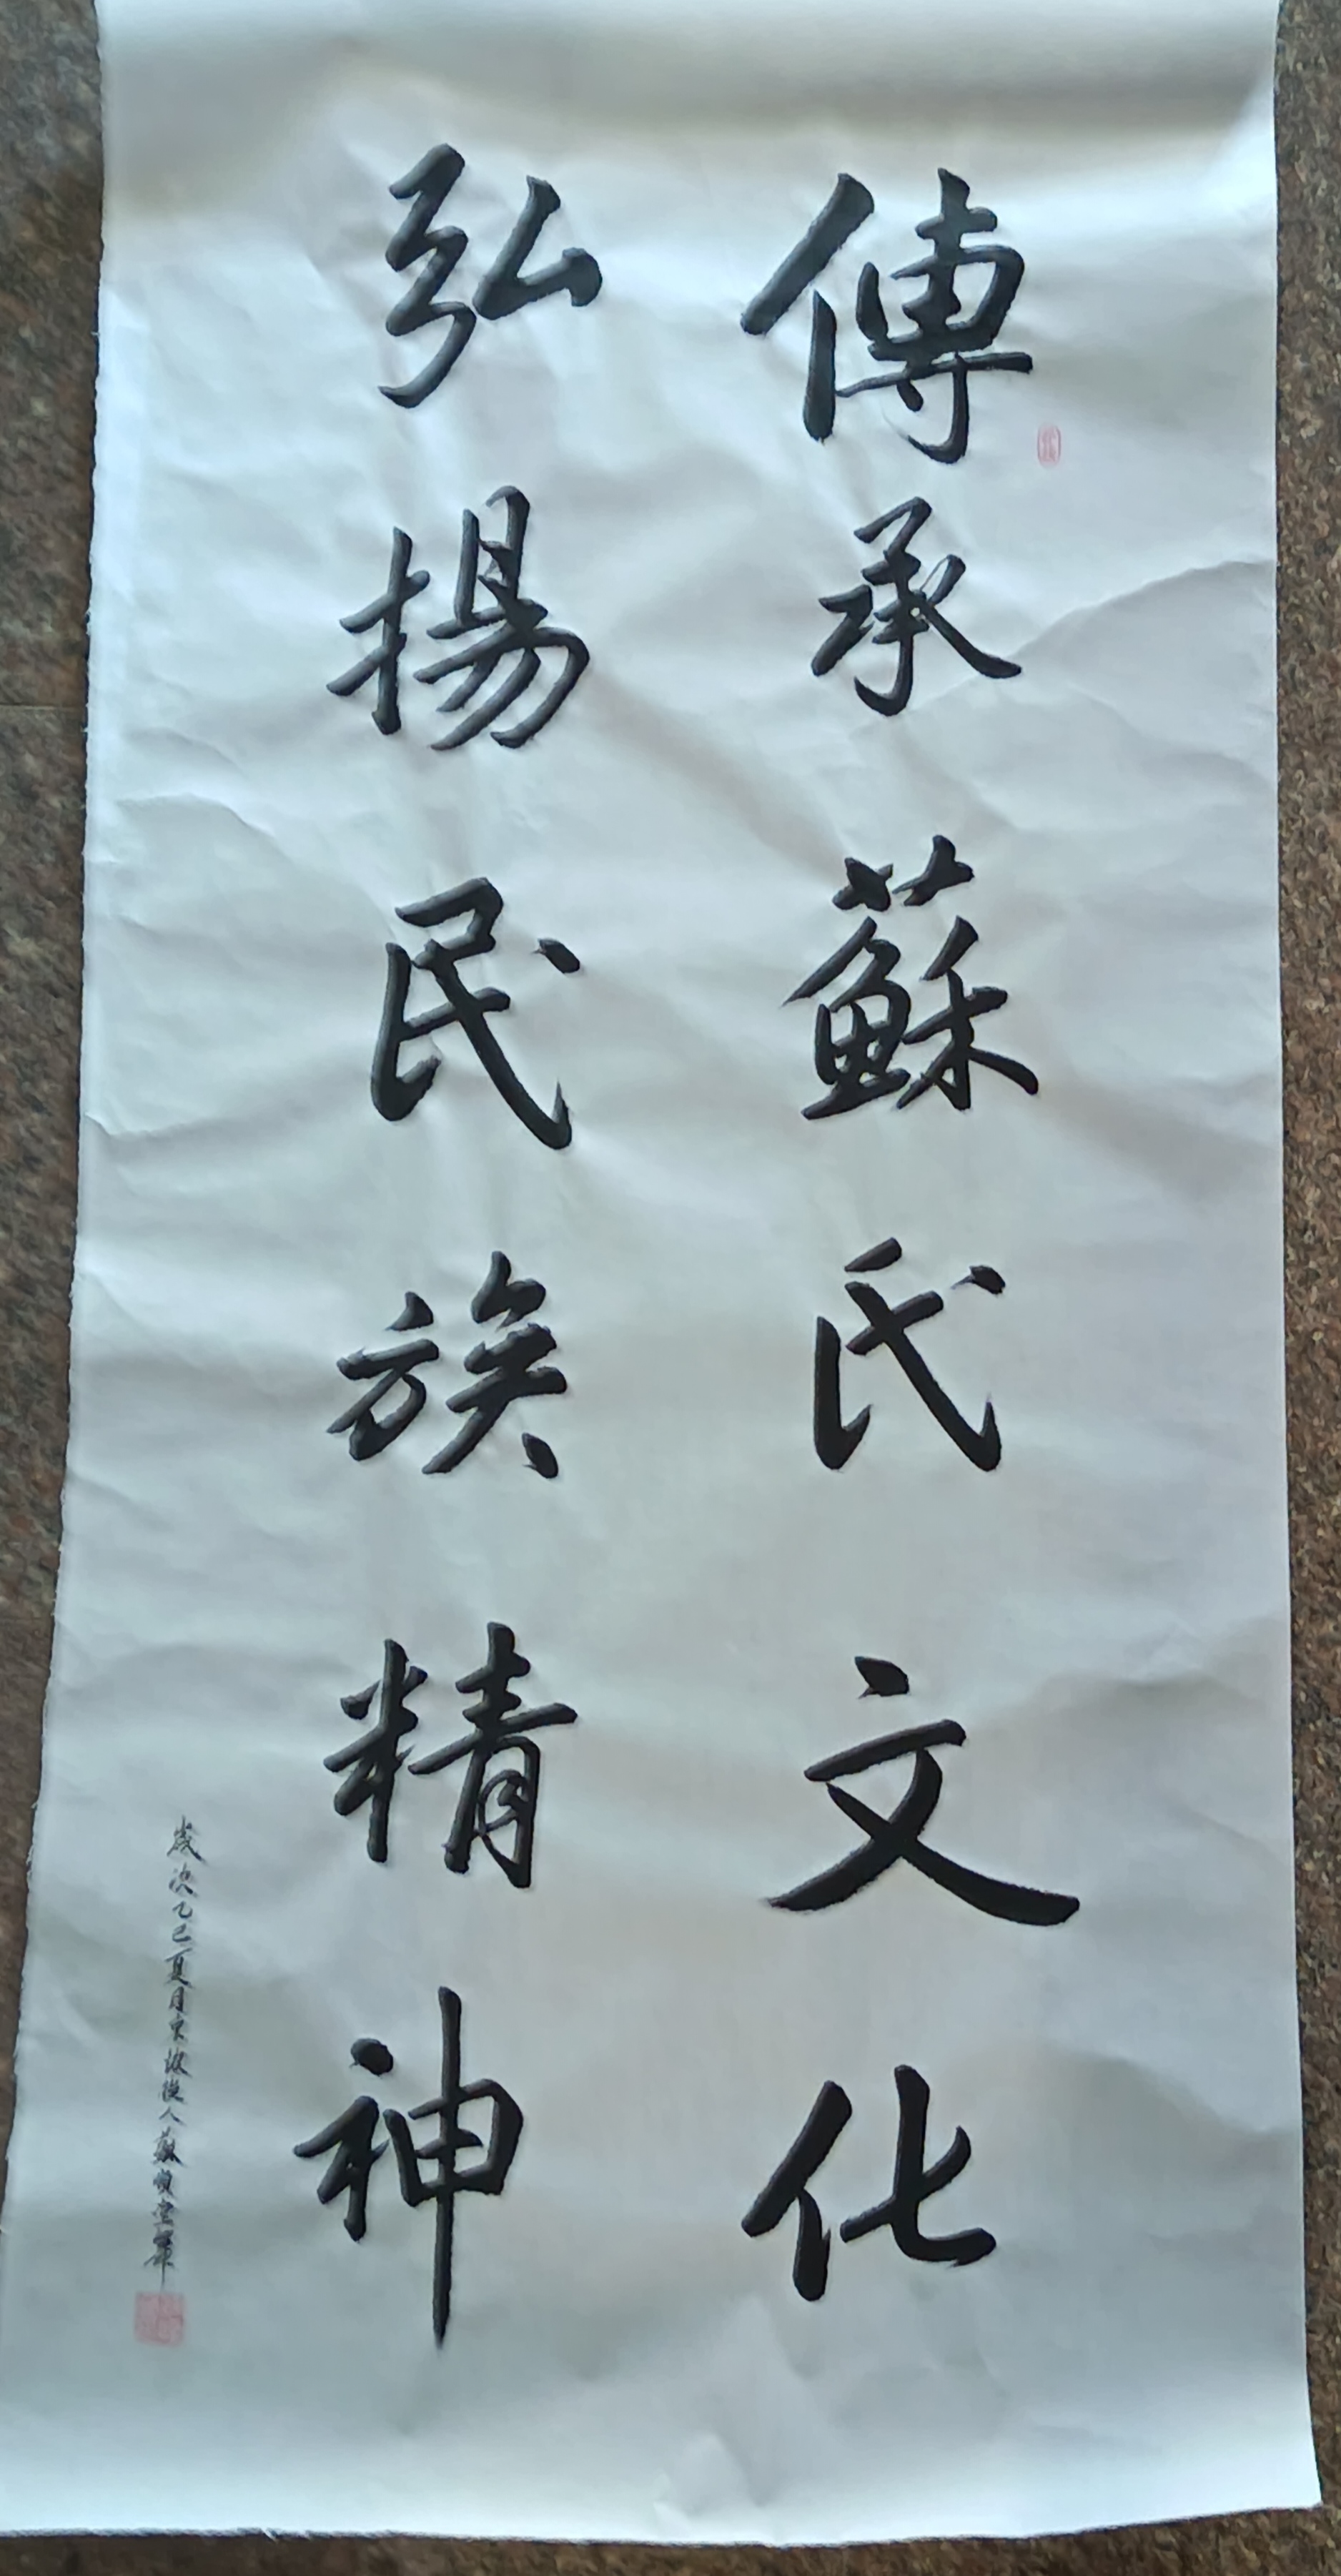 傳承蘇氏文化
弘揚民族精神
歲次乙巳夏月東坡後人蘇